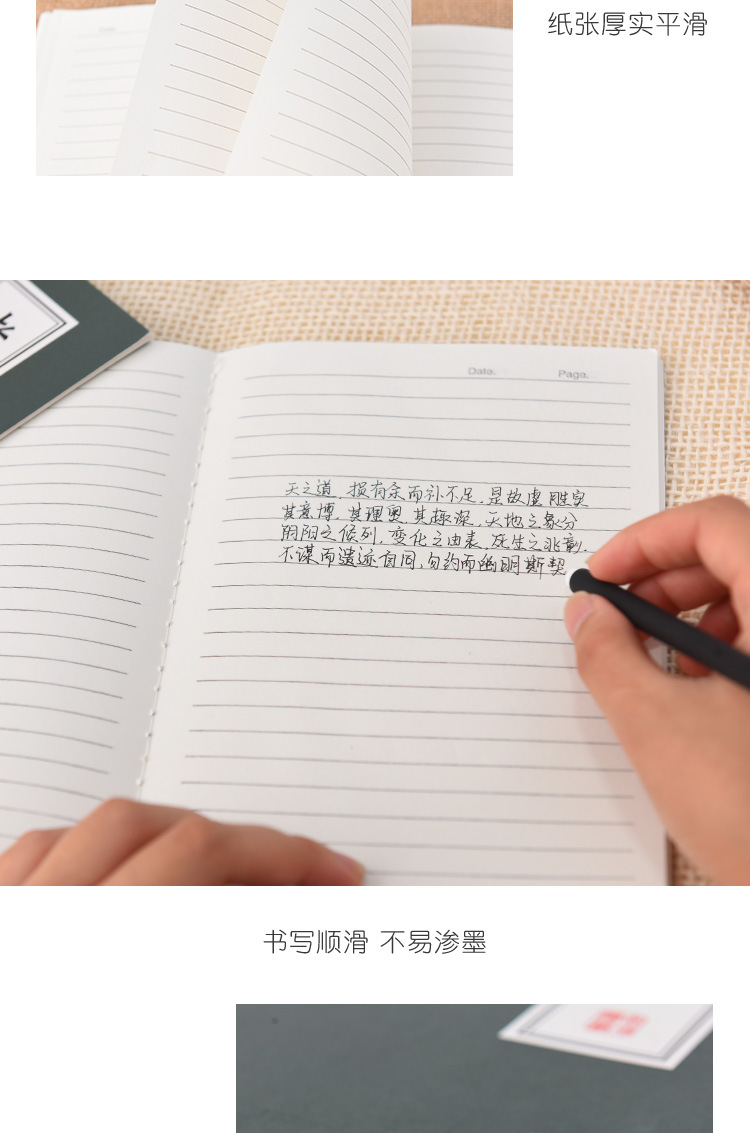 纸张厚实平滑
Date.
Page.
天之道,损有余而补不足,是故虚胜实
其意博,其理奥,其趣深,天地之象分
阴阳之候列,变化之由表,死生之兆彰.
不谋而遗迹自同,勿约而幽明斯契
书写顺滑 不易渗墨